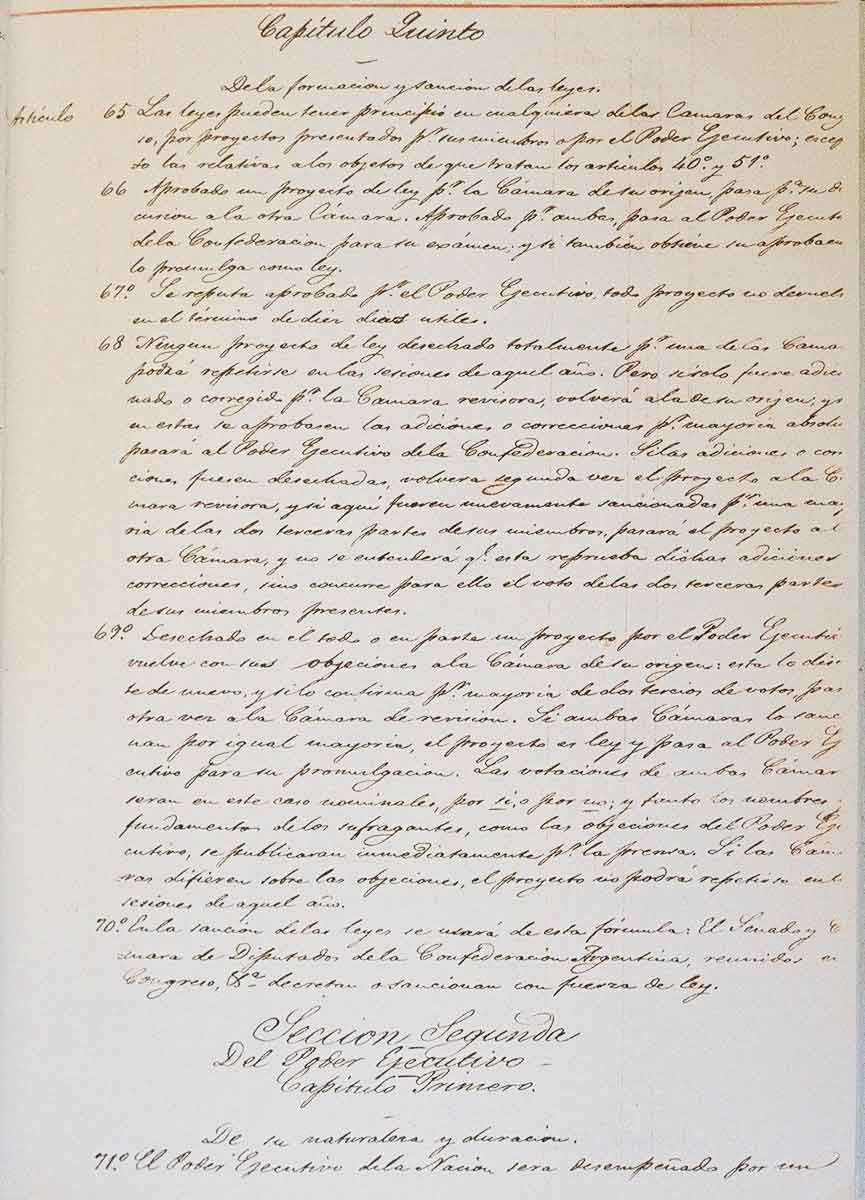 Capítulo Quinto
De la formacion y sancion de las leyes.
Artículo 65 Las leyes pueden tener principio en cualquiera de las Cámaras del Cong
so, por proyectos presentados pr. sus miembros o por el Poder Ejecutivo; escep
to las relativas a los objetos de que tratan los artículos 40º y 51º
66 Aprobado un proyecto de ley pr. la Cámara de su origen, pasa pa. su dis
cusion a la otra Cámara. Aprobado pr. ambas, pasa al Poder Ejecuti
de la Confederacion para su exámen; y si tambien obtiene su aprobacn
lo promulga como ley.
67º Se reputa aprobado pr. el Poder Ejecutivo, todo proyecto no devuel
en el término de diez dias utiles.
68 Ningun proyecto de ley desechado totalmente pr. una de las Cama
podrá repetirse en las sesiones de aquel año. Pero si solo fuere adici
nado o corregido pr. la Cámara revisora, volverá a la de su origen; y s
en estas se aprobasen las adiciones o correcciones pr. mayoria absolu
pasará al Poder Ejecutivo de la Confederacion. Si las adiciones o corr
ciones fuesen desechadas, volvera segunda vez el proyecto a la C
mara revisora, y si aquí fueren nuevamente sancionadas pr. una may
ria de las dos terceras partes de sus miembros, pasará el proyecto a l
otra Cámara, y no se entenderá q. esta reprueba dichas adiciones
correcciones, sino concurre para ello el voto de las dos terceras partes
de sus miembros presentes.
69º. Desechado en el todo o en parte un proyecto por el Poder Ejecuti
vuelve con sus objeciones a la Cámara de su origen: esta lo discu
te de nuevo, y si lo confirma pr. mayoria de dos tercios de votos, pas
otra vez a la Cámara de revision. Si ambas Cámaras lo sanc
nan por igual mayoria, el proyecto es ley y pasa al Poder Ej
cutivo para su promulgacion. Las votaciones de ambas Cámar
seran en este caso nominales, por si, o por no; y tanto los nombres
fundamentos de los sufragantes, como las objeciones del Poder Eje
cutivo, se publicaran inmediatamente pr. la prensa. Si las Cám
ras difieren sobre las objeciones, el proyecto no podrá repetirse en l
sesiones de aquel año.
70º. En la sancion de las leyes se usará de esta fórmula: El Senado y C
mara de Diputados de la Confederacion Argentina, reunidos en
Congreso, &a. decretan o sancionan con fuerza de ley.
Seccion Segunda
Del Poder Ejecutivo
Capítulo Primero.
De su naturaleza y duracion.
71º. El Poder Ejecutivo de la Nacion sera desempeñado por un